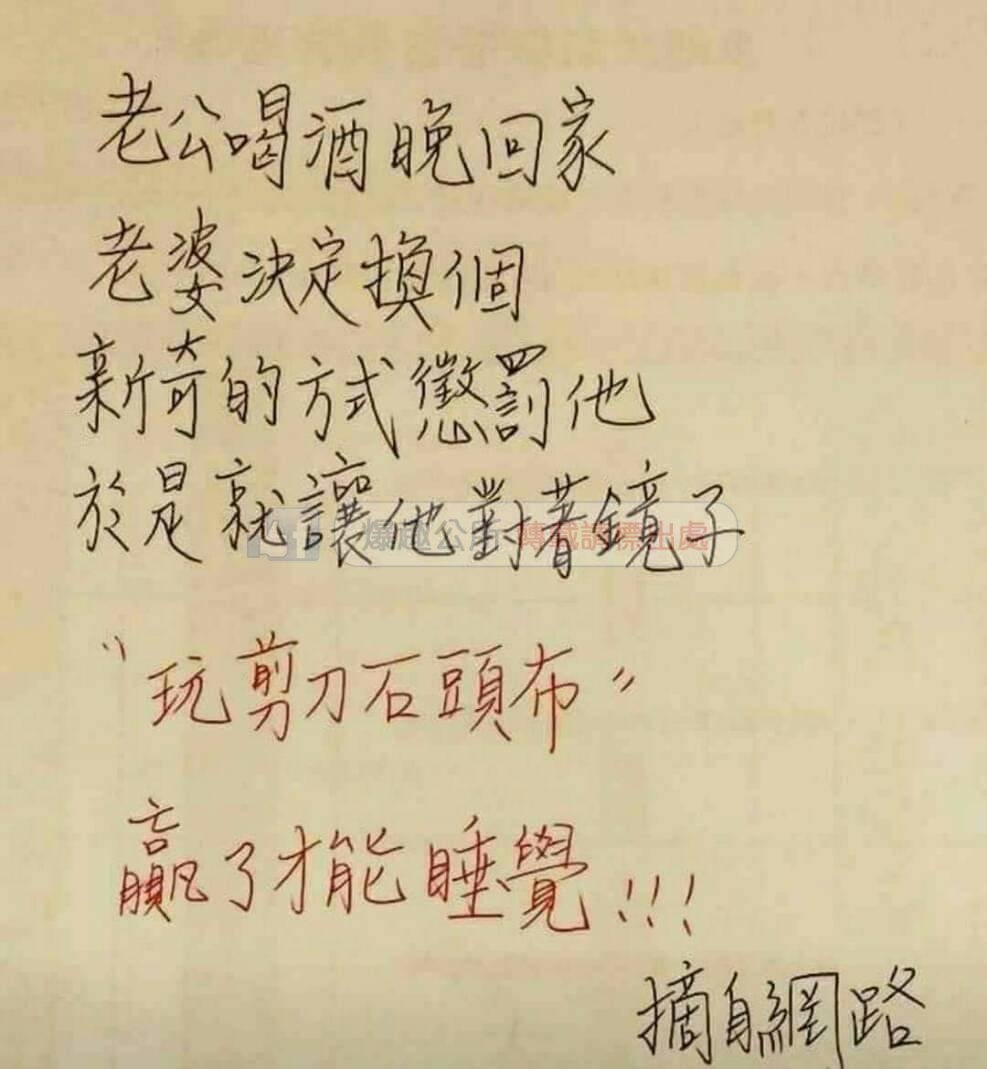 老公喝酒晚回家
老婆決定換個
新奇的方式懲罰他
於是就讓他對著鏡子
爆趣公所 轉載請標出處
"玩剪刀石頭布"
贏了才能睡覺!!!
摘自網路